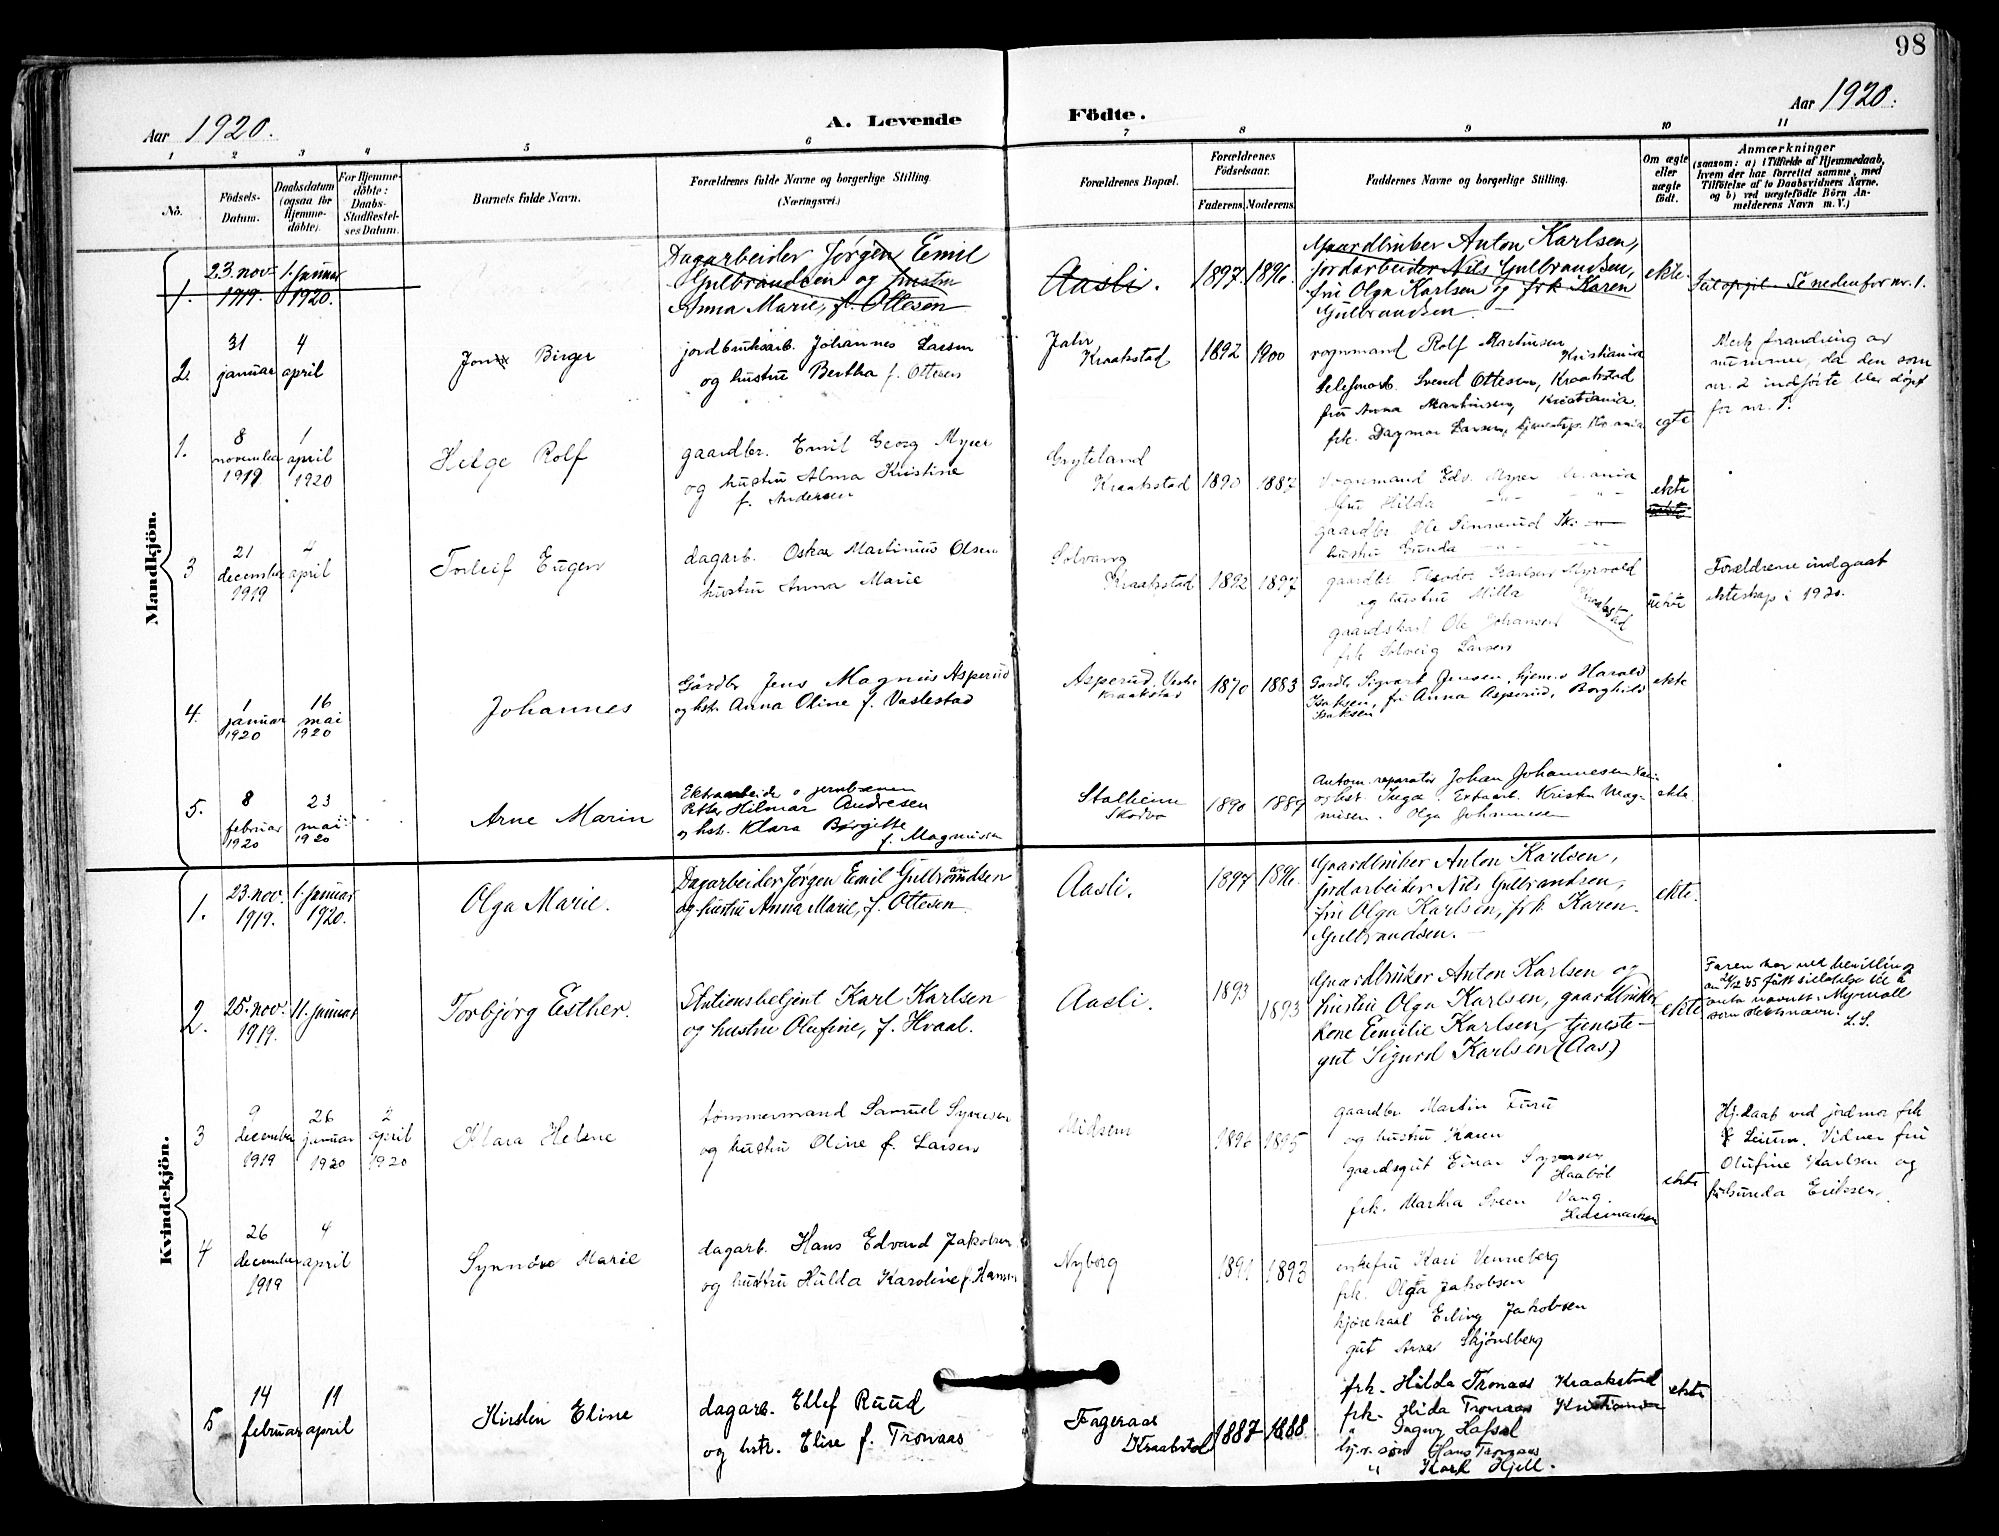 98
Aar 1920.
A. Levende
Födte.
Aar 1920.
1 2 3 4 5 6 7 8 9 10 11
No.
Födsels-
Datum.
Daabsdatum
(ogsaa for
Hjemme-
döbte).
For Hjemme-
döbte:
Daabs-
Stadfæstel-
ses Datum.
Barnets fulde Navn.
Forældrenes fulde Navne og borgerlige Stilling.
(Næringsvei.)
Forældrenes Bopæl.
Forældrenes
Födselsaar.
Faderens. Moderens.
Faddernes Navne og borgerlige Stilling.
Om ægte
eller
uægte
födt.
Anmærkninger
(saasom: a) i Tilfælde af Hjemmedaab,
hvem der har forrettet samme, med
Tilföielse af to Daabsvidners Navne.
og b) ved uægtefödte Börn An-
melderens Navn m. V.)
Mandkjön.
1.
23. nov.
1919.
1. januar
1920.
Dagarbeider Jørgen Emil
Gulbrandsen og hustru
Anna Marie, f. Ottesen
Aasli.
1897. 1896.
Gaardbruker Anton Karlsen,
jordarbeider Nils Gulbrandsen,
fru Olga Karlsen og frk Karen
Gulbrandsen.
ekte.
Feilopgit. Se nedenfor nr. 1.
2.
31
januar
4
april
Birger
jordbruksarb. Johannes Larsen
og hustru Bertha f. Ottesen
Jahr
Kraakstad
1892 1900
vognmand Rolf Martinsen
Kristiania
Svend Ottesen, Kraakstad
fru Anna Martinsen, Kristiania.
frk. Dagmar Larsen,
egte
Merk forandring av
nummer, da den som
nr. 2 indførte blev døpt
før nr. 1.
1.
8
november
1919
1
april
1920
Helge Rolf
gaardbr. Emil Georg Myrer
og hustru Alma Kristine
f. Andersen
Gryteland
Kraakstad
1890 1887
vognmand Edv. Myrer
fru Hilda
gaardbr Ole
hustru Gunda
ekte
3
21
december
1919
4
april
Torleif Eugen
dagarb. Oskar Martinius Olsen
hustru Anna Marie
Solvang
Kraakstad
1892 1897
gaardbr Theodor Karlsen Myrvold
og hustru Milla
Kraakstad
gaardskarl Ole Johansen
frk Solveig Larsen
Forældrene indgaat
ekteskap i 1920.
4.
1
januar
1920
16
mai
1920
Johannes
Gårdbr Jens Magnus Asperud
og hst. Anna Oline f. Vaslestad
Asperud, Vestre
Kraakstad
1870 1883
Gardbr Sigvart Jensen, hjem.v Harald
Isaksen, fr Anna Asperud, Borghild
Isaksen
ekte
5.
8
februar
1920
23
mai
1920
Arne Marin
Ekstraarbeide v jernbanen
Petter Hilmar Andresen
og hst. Klara Børgitte
f. Magnussen
Stalheim
Skodvo
1890 1889
Autom. reparatør Johan Johannesen
og hst. Inga. Extraarb. Kristen Mag-
nisen. Olga Johannesen
ekte
Kvindekjön.
1.
23. nov.
1919.
1. januar
1920.
Olga Marie.
Dagarbeider Jørgen Emil Gulbrandsen
og hustru Anna Marie, f. Ottesen
Aasli.
1897 1896.
Gaardbruker Anton Karlsen,
jordarbeider Nils Gulbrandsen,
fru Olga Karlsen, frk. Karen
Gulbrandsen.
ekte.
2.
25. nov.
1919.
11. januar
Torbjørg Esther.
Stationsbetjent Karl Karlsen
og hustru Olufine, f. Hvaal.
Aasli.
1893
1893
Gaardbruker Anton Karlsen og
hustru Olga Karlsen, gaardbruker
kone Emilie Karlsen, tjeneste-
gut Sigurd Karlsen (Aas)
ekte
Faren har ved bevilling
av 24/2 35 fått tillatelse til å
anta navnet Myrvoll
som slektsnavn.
L.S.
3
9
december
1919
26
januar
1920
2
april
1920
Klara Helene
tømmermand Samuel Syversen
og hustru Oline f. Larsen
Midsem
1896 1895
gaardbr. Martin Furu
og hustru Karen
gaardsgut Einar Syversen
Haabøl
frk. Martha Sveen Vang.
Hedemarken
ekte
Hj.daab ved jordmor frk
Leium. Vidner fru
Olufine Karlsen og
Gunda Eriksen.
4
26
december
1919
4
april
Synnøve Marie
dagarb. Hans Edvard Jakobsen
og hustru Hulda Karoline f. Hansen
Nyborg
1891 1893
enkefru Kari Venneberg
frk. Olga Jakobsen
kjørekarl Erling Jakobsen
gut Arne Skjønsberg
5
14
februar
11
april
Kirsten Eline
dagarb. Ellef Ruud
og hstr. Elise f. Tronaas
Fageraas
Kraakstad
1887 1888
frk. Hilda Tronaas Kraakstad
frk. Hida Tronaas Kristiania
" Dagny Hafsal
Hans Tronaas
" Karl Hjell.
ekte